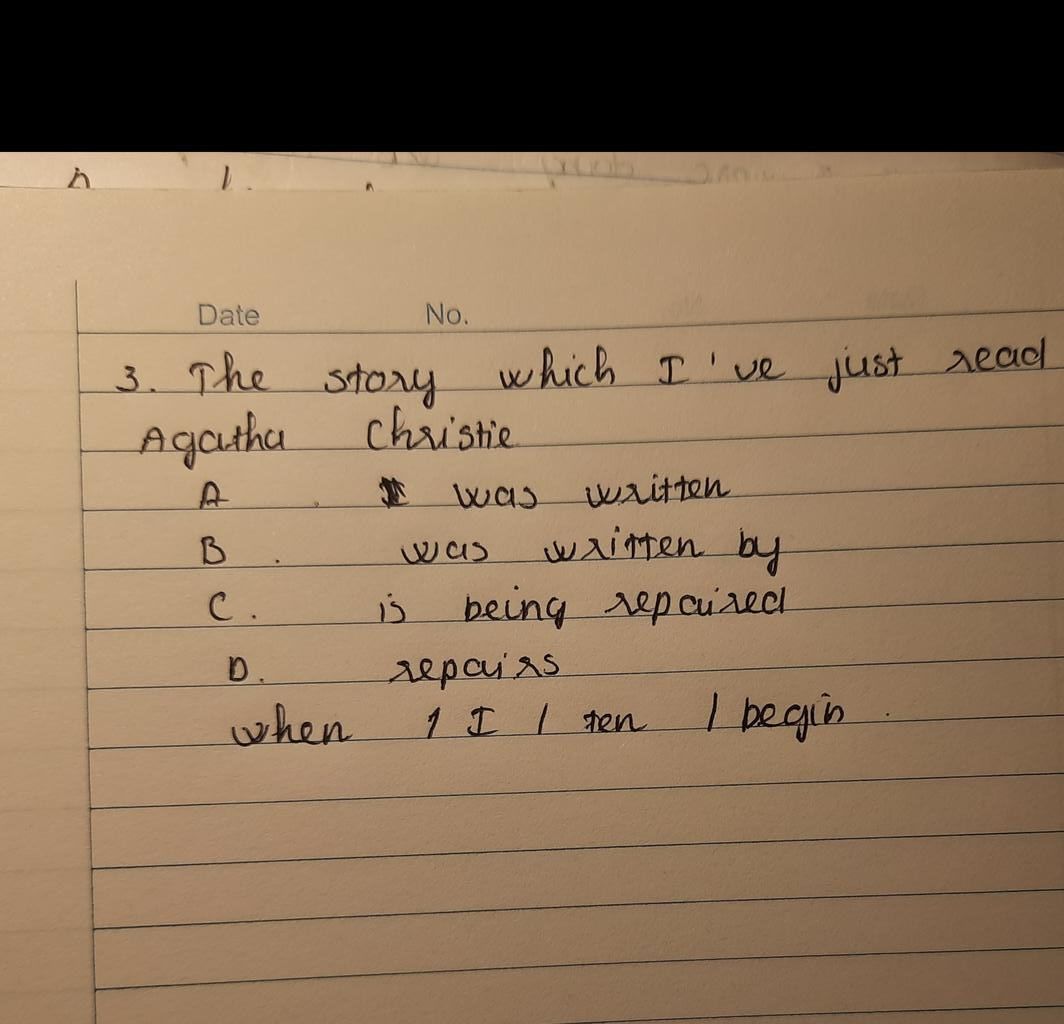 Date No.
3. The story which I've just read
Agatha Christie
A . was written
B . was written by
C . is being repaired
D. repairs
when 1 I / ten / begin .